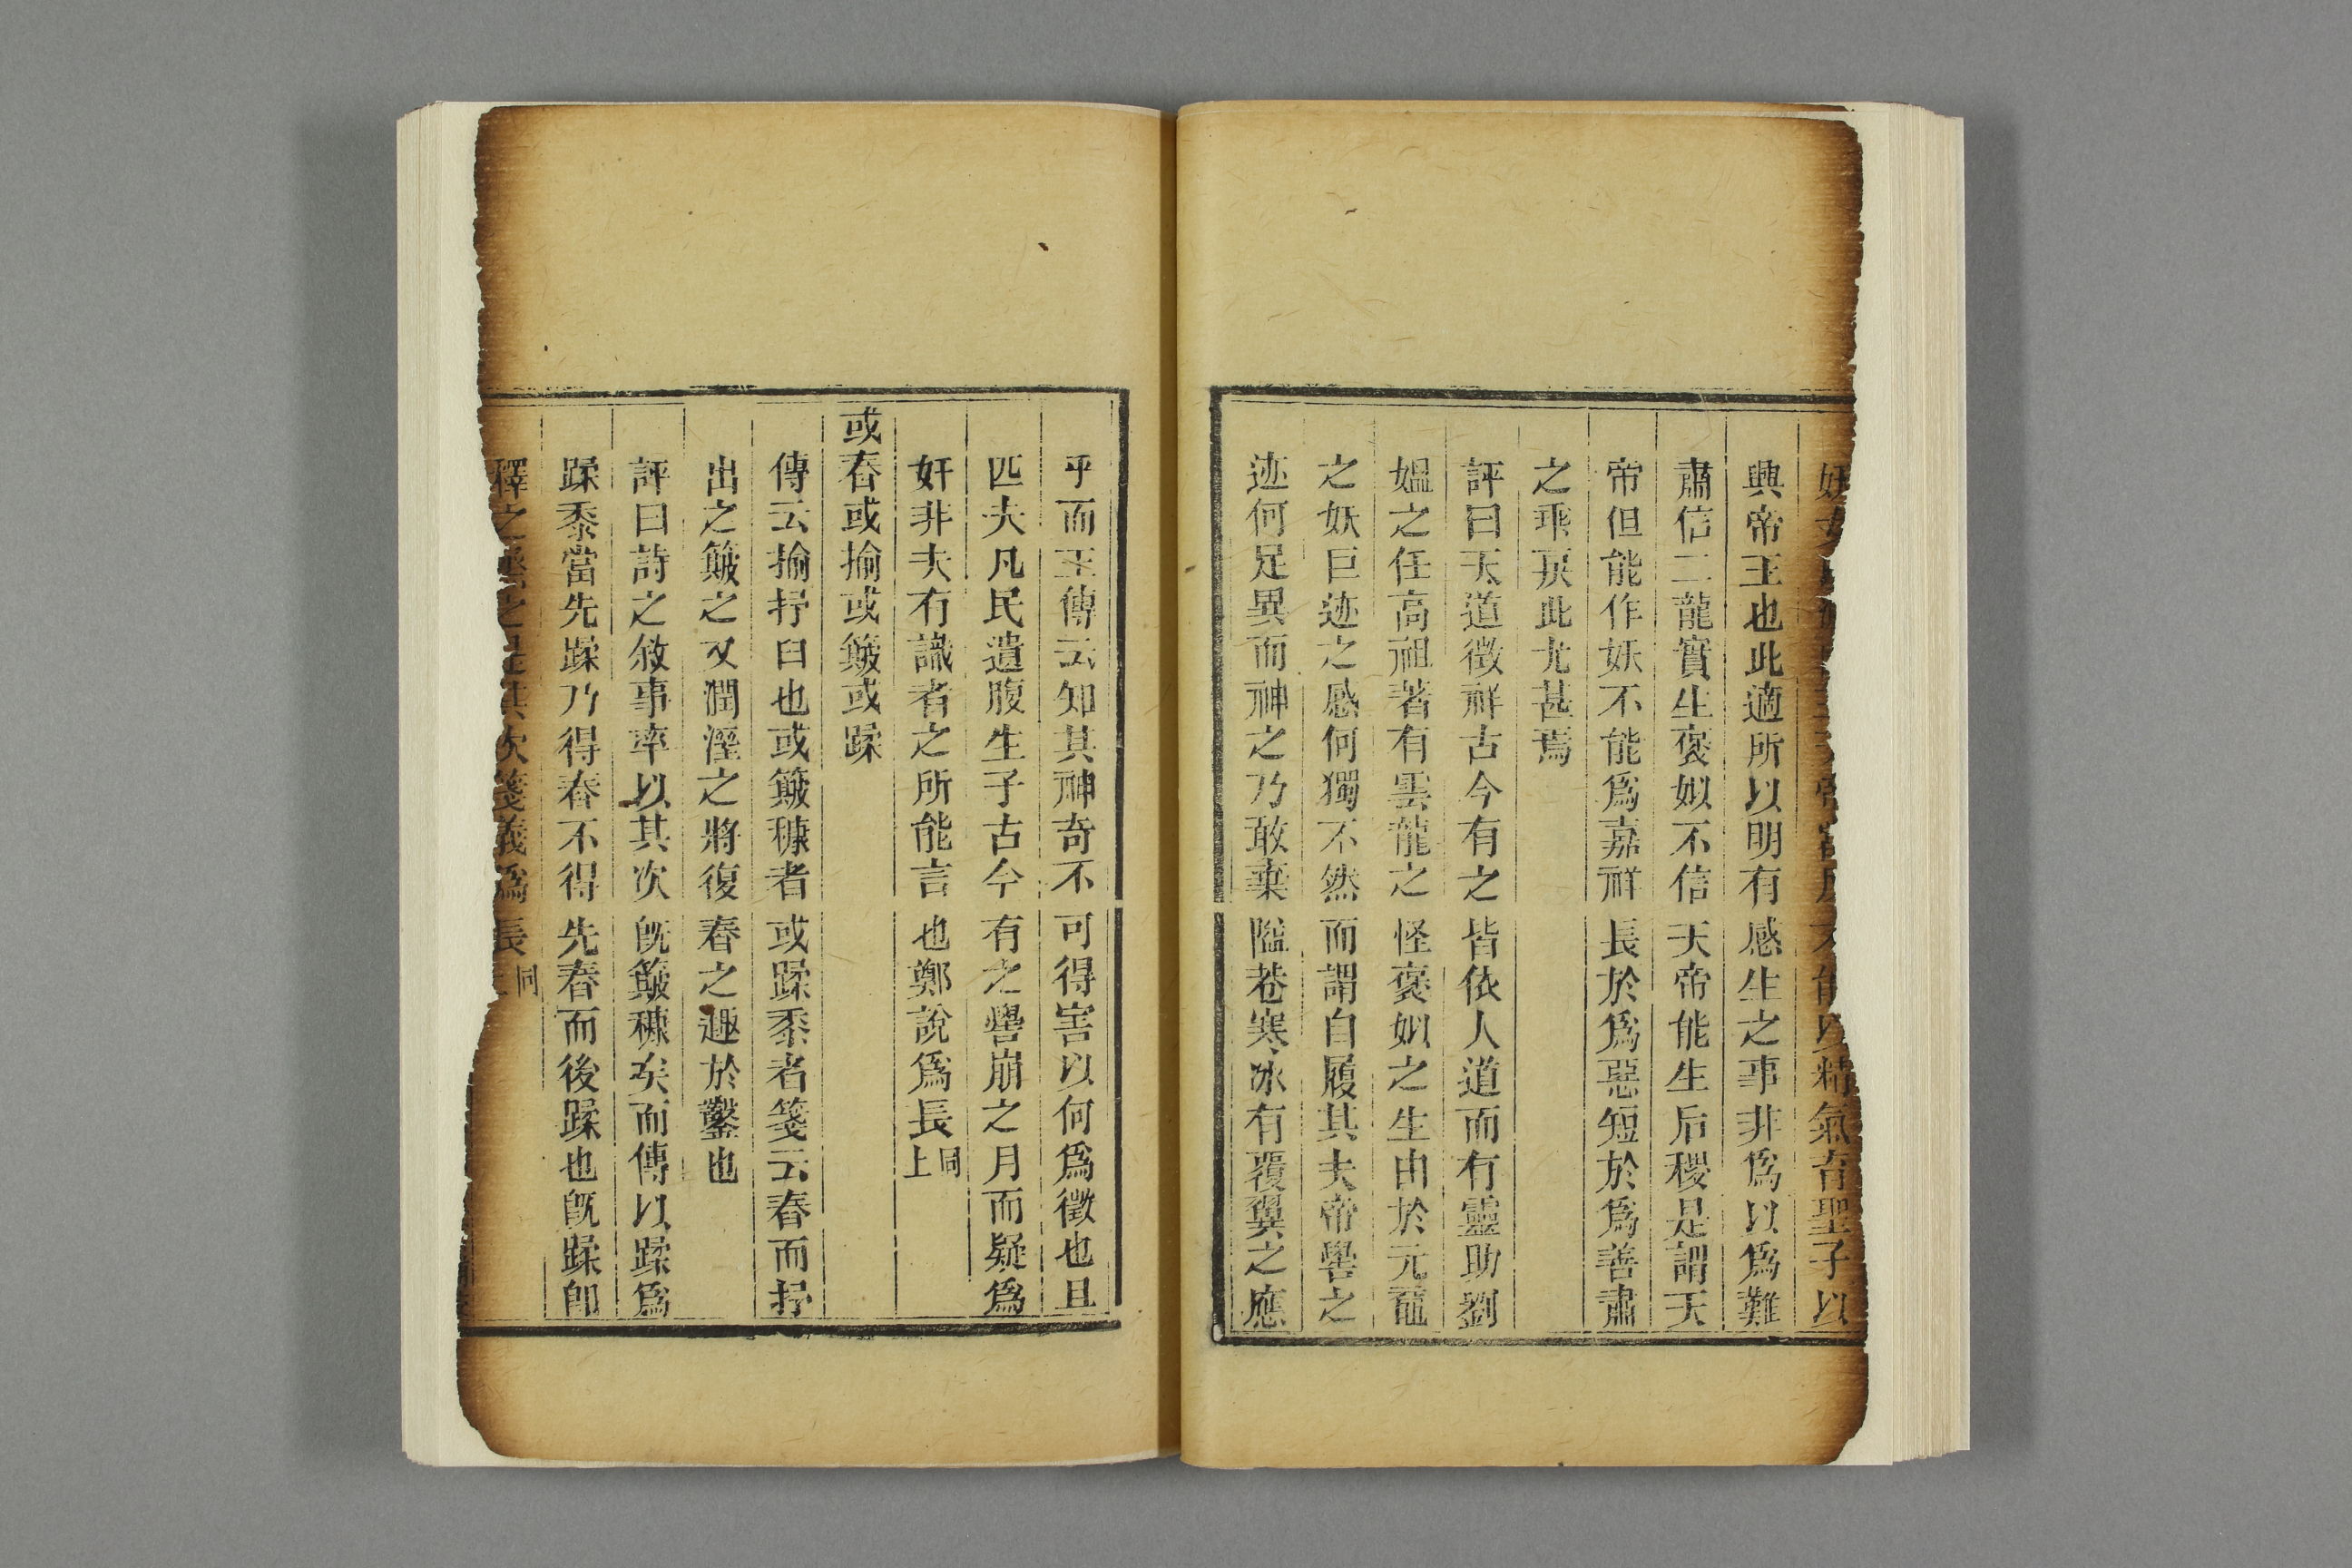 精氣育聖子以
興帝王也此適所以明有感生之事非爲以爲難
肅信二龍實生褒姒不信天帝能生后稷是謂天
帝但能作妖不能爲嘉祥長於爲惡短於爲善肅
之乖戾此尤甚焉
評曰天道徵祥古今有之皆依人道而有靈助劉
媼之任高祖著有雲龍之怪褒姒之生由於元黿
之妖巨迹之感何獨不然而謂自履其夫帝嚳之
迹何足異而神之乃敢棄隘巷寒冰有覆翼之應
乎而王傳云知其神奇不可得害以何爲徵也且
匹夫凡民遺腹生子古今有之嚳崩之月而疑爲
奸非夫有識者之所能言也鄭說爲長同上
或舂或揄或簸或蹂
傳云揄抒臼也或簸穅者或蹂黍者箋云舂而抒
出之簸之又潤溼之將復舂之趣於鑿也
評曰詩之敘事率以其次旣簸穅矣而傳以蹂爲
蹂黍當先蹂乃得舂不得先舂而後蹂也旣蹂卽
釋之烝之是其次箋義爲長同上